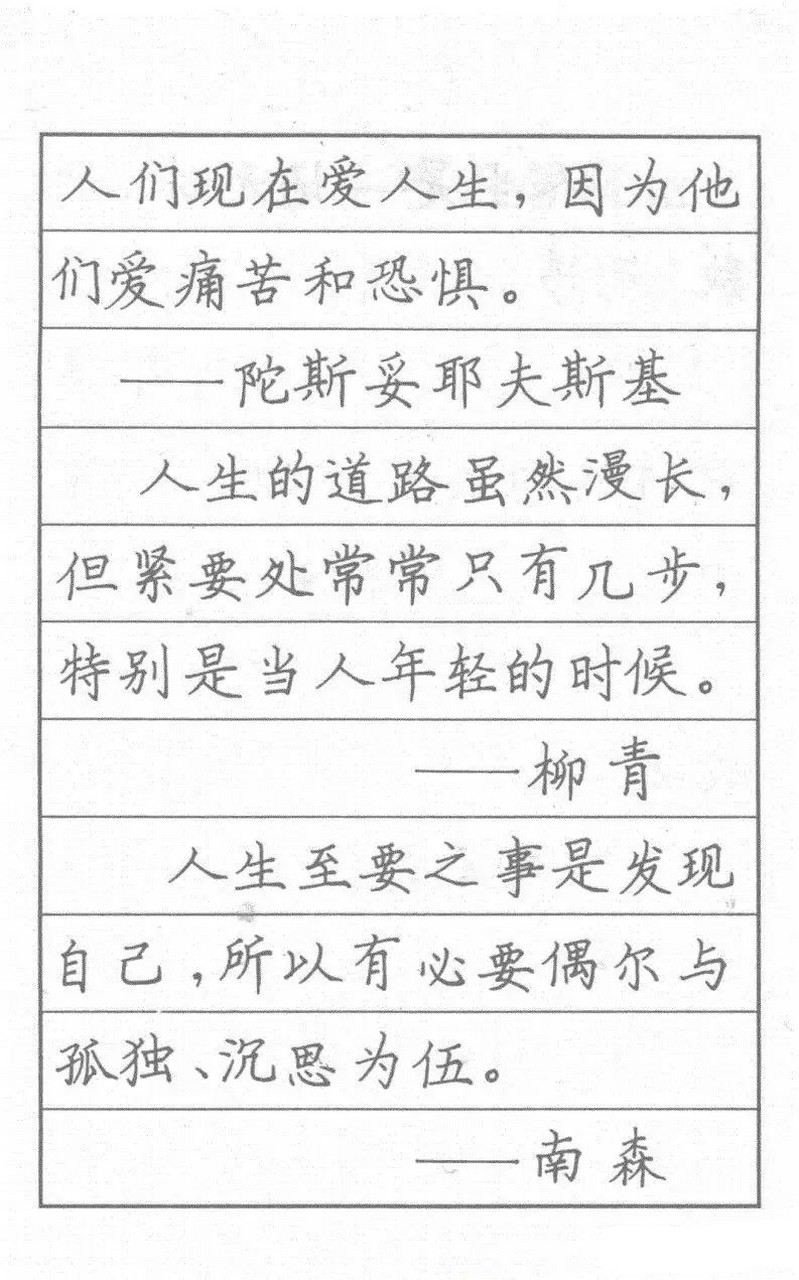 人们现在爱人生，因为他
们爱痛苦和恐惧。
——陀斯妥耶夫斯基
人生的道路虽然漫长，
但紧要处常常只有几步，
特别是当人年轻的时候。
——柳青
人生至要之事是发现
自己，所以有必要偶尔与
孤独、沉思为伍。
——南森